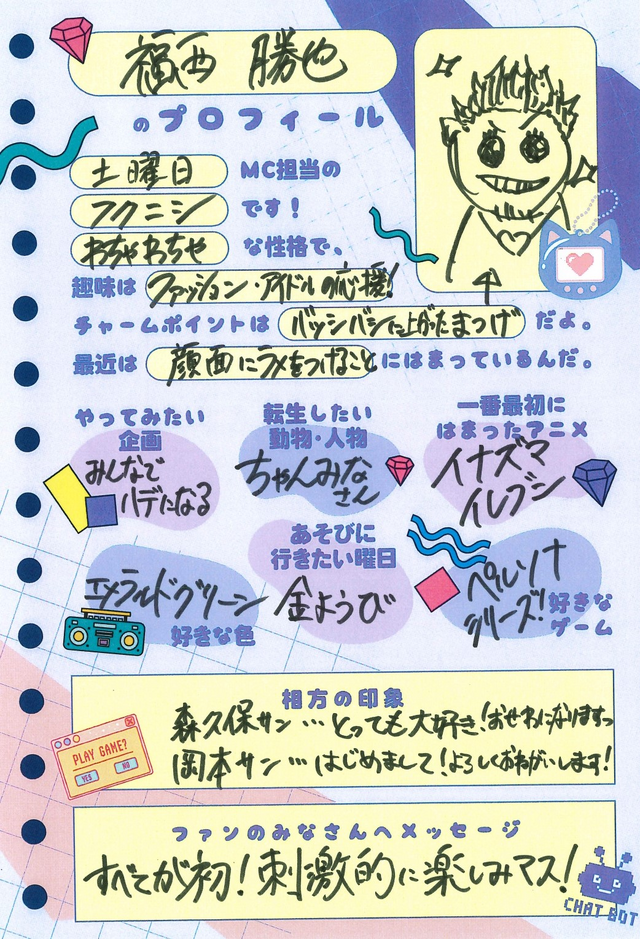 福西 勝也
のプロフィール
土曜日 MC担当の
フクニシ です！
わちゃわちゃ な性格で、
趣味は ファッション・アイドルの応援！
チャームポイントは バッシバシに上がったまつげ だよ。
最近は 顔面にラメをつけること にはまっているんだ。
やってみたい
企画
みんなで
ハデになる
転生したい
動物・人物
ちゃんみな
さん
一番最初に
はまったアニメ
イナズマ
イレブン
エメラルドグリーン
好きな色
あそびに
行きたい曜日
金ようび
ペルソナ
シリーズ！
好きな
ゲーム
相方の印象
森久保サン…とっても大好き！おせわになりますっ
岡本サン…はじめまして！よろしくおねがいします！
PLAY GAME?
YES NO
ファンのみなさんへメッセージ
すべてが初！刺激的に楽しみマス！
CHAT BOT